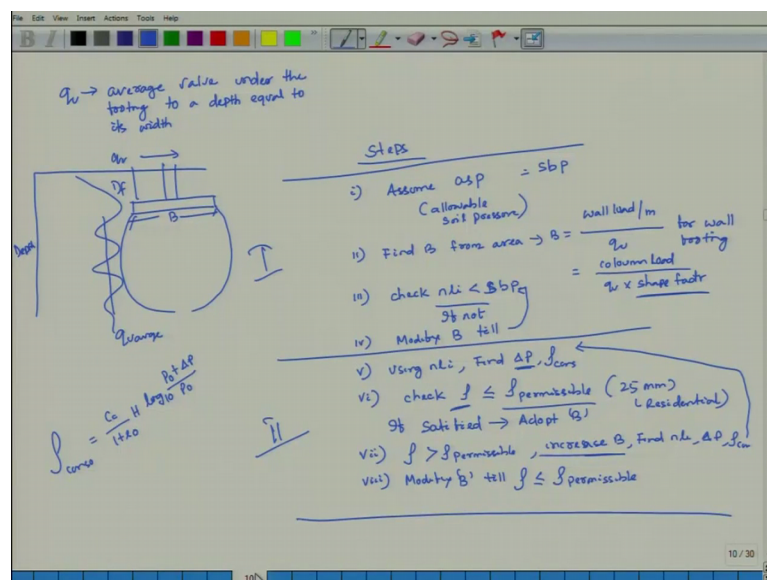 File Edit View Insert Actions Tools Help
qu → average value under the
footing to a depth equal to
its width
qu →
Df
B
Depth
quavage
I
Steps
i) Assume asp = sbp
(allowable
soil pressure)
ii) Find B from area → B = wall load/m / qu for wall footing
= coloumn load / qu x shape factr
iii) check nli < Sbp
If not
iv) Modify B till
v) Using nli, Find ΔP, ρcons
vi) check ρ ≤ ρpermissible (25 mm)
(Residential)
If Satisfied → Adopt 'B'
vii) ρ > ρpermissible, increase B, Find nli, ΔP, ρcon
viii) Modify 'B' till ρ ≤ ρpermissible
II
ρconso = Cc / 1+e0 H log10 P0+ΔP / P0
10 / 30
10